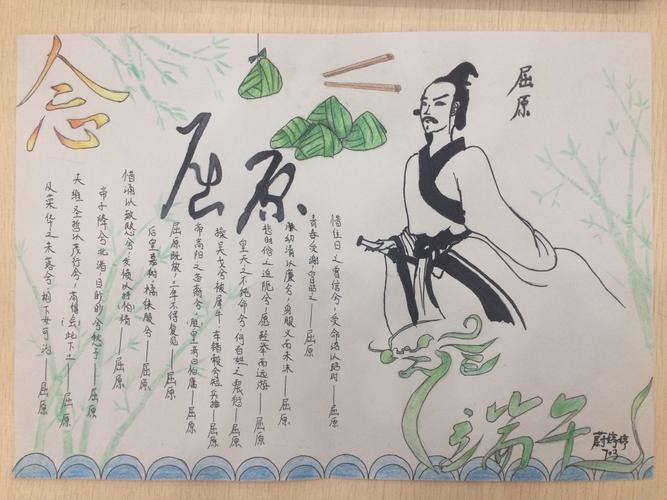 念
屈原
屈原
惜往日之曾信兮,受命诏以昭时——屈原
青春受谢,白日昭之——屈原
朕幼清以廉兮,身服义而未沫——屈原
悲时俗之迫阨兮,愿轻举而远游——屈原
皇天之不纯命兮,何百姓之震愆——屈原
操吴戈兮被犀甲,车错毂兮短兵接——屈原
帝高阳之苗裔兮,朕皇考曰伯庸——屈原
屈原既放,三年不得复见——屈原
后皇嘉树,橘徕服兮——屈原
惜诵以致愍兮,发愤以抒情——屈原
帝子降兮北渚,目眇眇兮愁予——屈原
夫维圣哲以茂行兮,苟得此下土——屈原
及荣华之未落兮,相下女可诒——屈原
端午
703